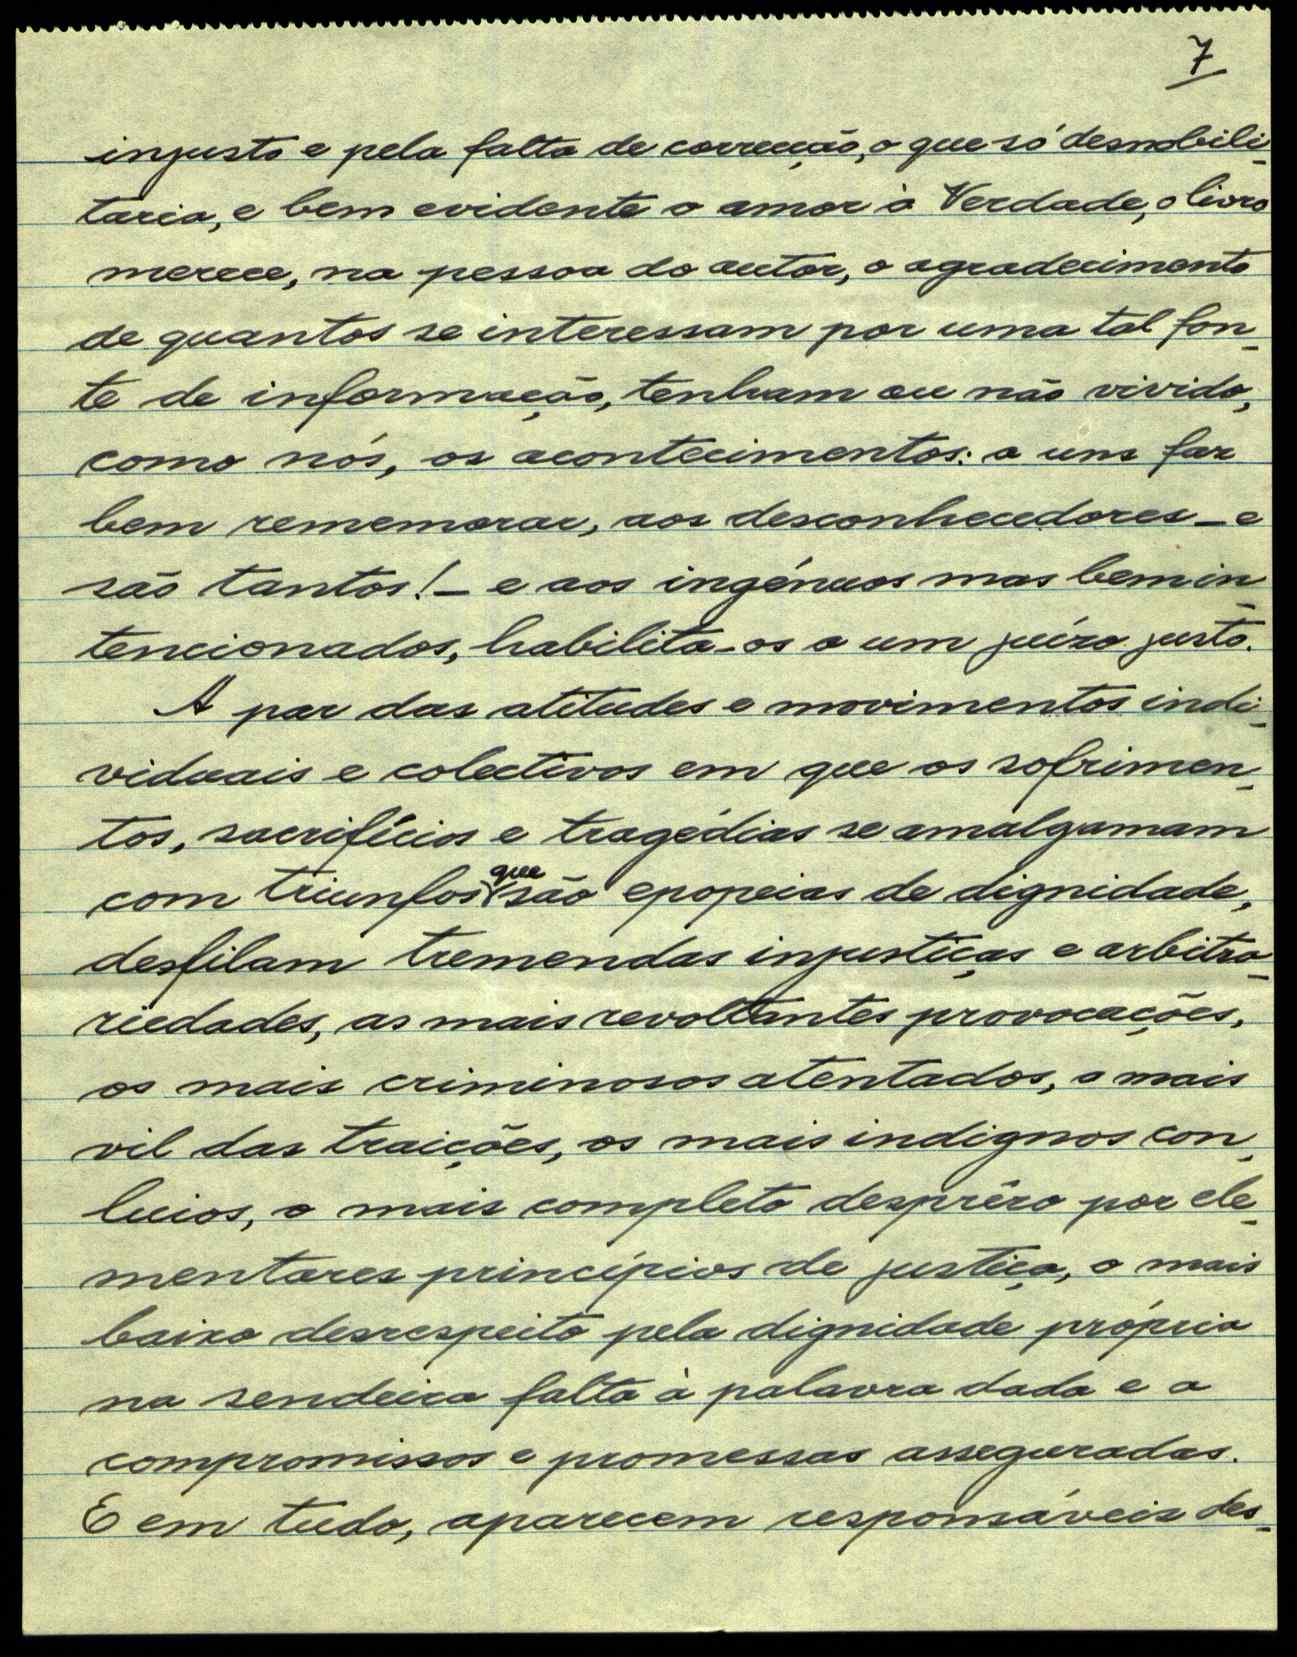 7
injusto e pela falta de correcção, o que só desnobili-
taria, e bem evidente o amor à Verdade, o livro
merece, na pessoa do autor, o agradecimento
de quantos se interessam por uma tal fon-
te de informação, tenham ou não vivido,
como nós, os acontecimentos: a uns faz
bem rememorar, aos desconhecedores - e
são tantos! - e aos ingénuos mas bem in-
tencionados, habilita-os a um juízo justo.
A par das atitudes e movimentos indi-
viduais e colectivos em que os sofrimen-
tos, sacrifícios e tragédias se amalgamam
com triunfos que são epopeias de dignidade,
desfilam tremendas injustiças e arbitra-
riedades, as mais revoltantes provocações,
os mais criminosos atentados, a mais
vil das traições, os mais indignos con-
luios, o mais completo desprêzo por ele-
mentares princípios de justiça, o mais
baixo desrespeito pela dignidade própria
na sendeira falta à palavra dada e a
compromissos e promessas asseguradas.
E em tudo, aparecem responsáveis des-